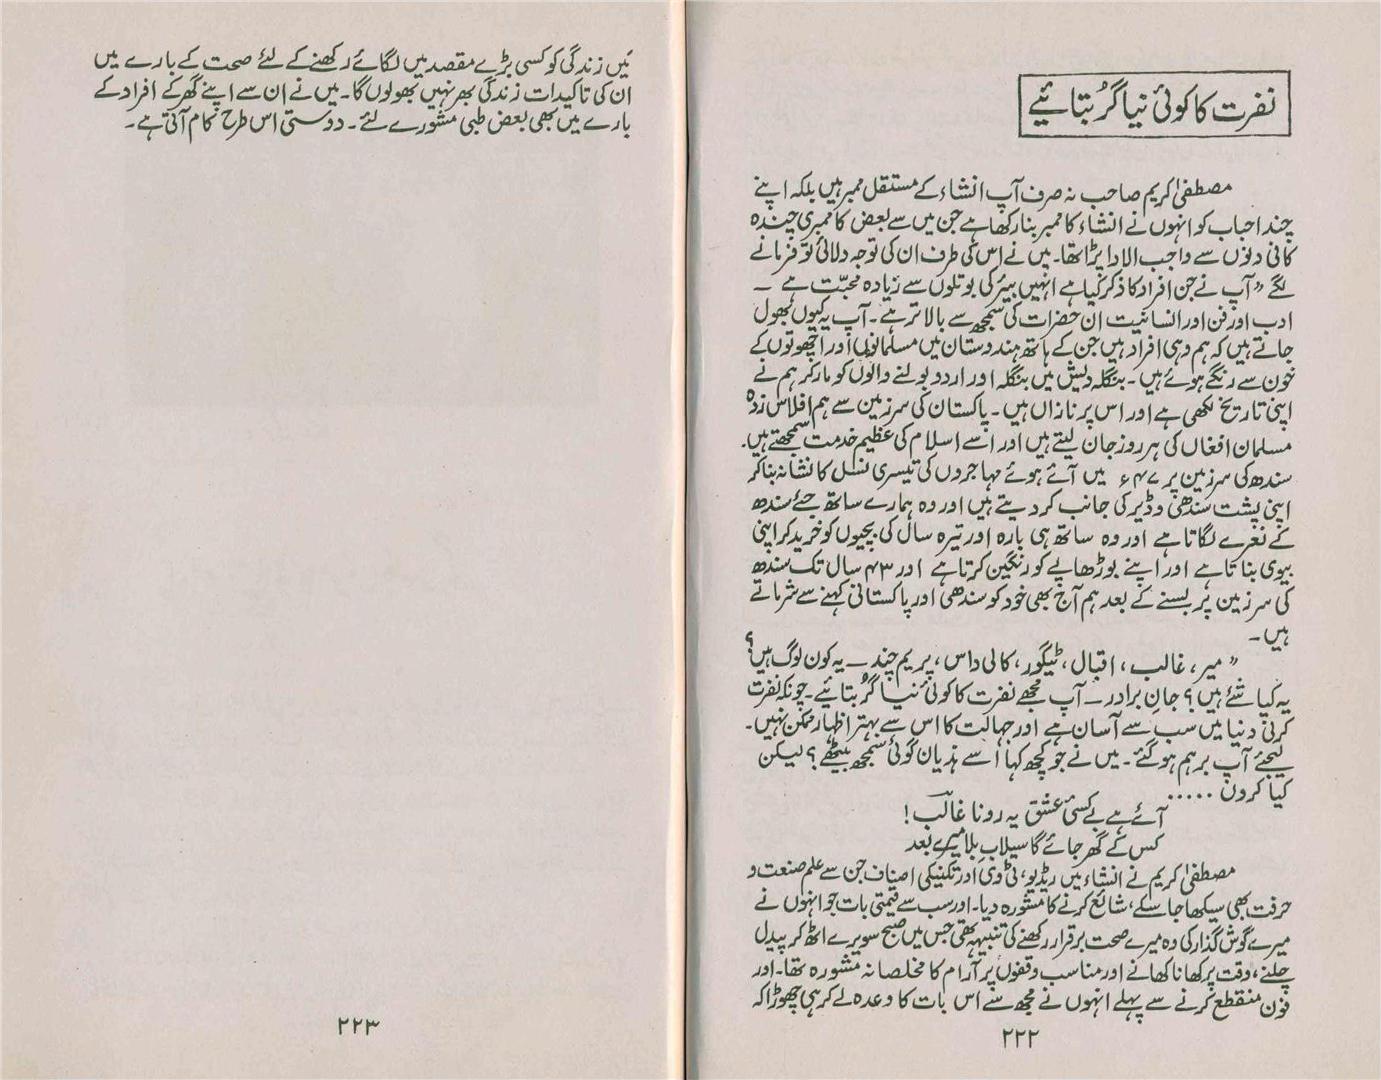 نفرت کا کوئی نیا گُر بتائیے
مصطفیٰ کریم صاحب نہ صرف آپ انشاء کے مستقل ممبر ہیں بلکہ اپنے
چند احباب کو انہوں نے انشاء کا ممبر بنا رکھا ہے جن میں سے بعض کا ممبری چندہ
کافی دنوں سے واجب الادا پڑا تھا۔ میں نے اس کی طرف ان کی توجہ دلائی تو فرمانے
لگے ”آپ نے جن افراد کا ذکر کیا ہے انہیں بیئر کی بوتلوں سے زیادہ محبّت ہے ۔
ادب اور فن اور انسانیت ان حضرات کی سمجھ سے بالاتر ہے۔ آپ یہ کیوں بھول
جاتے ہیں کہ ہم وہی افراد ہیں جن کے ہاتھ ہندوستان میں مسلمانوں اور اچھوتوں کے
خون سے رنگے ہوئے ہیں۔ بنگلہ دیش میں بنگلہ اور اردو بولنے والوں کو مار کر ہم نے
اپنی تاریخ لکھی ہے اور اس پر نازاں ہیں۔ پاکستان کی سرزمین سے ہم افلاس زدہ
مسلمان افغاں کی ہر روز جان لیتے ہیں اور اسے اسلام کی عظیم خدمت سمجھتے ہیں۔
سندھ کی سرزمین پر ۴۷ء میں آئے ہوئے مہاجروں کی تیسری نسل کا نشانہ بنا کر
اپنی پشت سندھی وڈیر کی جانب کر دیتے ہیں اور وہ ہمارے ساتھ جئے سندھ
کے نعرے لگاتا ہے اور وہ ساتھ ہی بارہ اور تیرہ سال کی بچیوں کو خرید کر اپنی
بیوی بناتا ہے اور اپنے بوڑھاپے کو رنگین کرتا ہے اور ۴۳ سال تک سندھ
کی سرزمین پر بسنے کے بعد ہم آج بھی خود کو سندھی اور پاکستانی کہنے سے شرماتے
ہیں۔
”میر، غالب، اقبال، ٹیگور، کالی داس، پریم چند ــ یہ کون لوگ ہیں؟
یہ کیا شئے ہیں؟ جانِ برادر ــ آپ مجھے نفرت کا کوئی نیا گُر بتائیے۔ چونکہ نفرت
کرنی دنیا میں سب سے آسان ہے اور جہالت کا اس سے بہتر اظہار ممکن نہیں۔
لیجئے آپ برہم ہو گئے۔ میں نے جو کچھ کہا اُسے ہذیان گوئی سمجھ بیٹھے؟ لیکن
کیا کروں .....
آئے ہے بے کسیٔ عشق پہ رونا غالبؔ!
کس کے گھر جائے گا سیلابِ بلا میرے بعد
مصطفیٰ کریم نے انشاء میں ریڈیو، ٹی وی اور تکنیکی اصناف جن سے علم صنعت و
حرفت بھی سیکھا جا سکے، شائع کرنے کا مشورہ دیا۔ اور سب سے قیمتی بات جو انہوں نے
میرے گوش گذار کی وہ میرے صحت برقرار رکھنے کی تنبیہہ تھی جس میں صبح سویرے اٹھ کر پیدل
چلنے، وقت پر کھانا کھانے اور مناسب وقفوں پر آرام کا مخلصانہ مشورہ تھا۔ اور
فون منقطع کرنے سے پہلے انہوں نے مجھ سے اس بات کا وعدہ لے کر ہی چھوڑا کہ
۲۲۲
میں زندگی کو کسی بڑے مقصد میں لگائے رکھنے کے لئے صحت کے بارے میں
ان کی تاکیدات زندگی بھر نہیں بھولوں گا۔ میں نے ان سے اپنے گھر کے افراد کے
بارے میں بھی بعض طبی مشورے لئے۔ دوستی اس طرح کام آتی ہے۔
۲۲۳